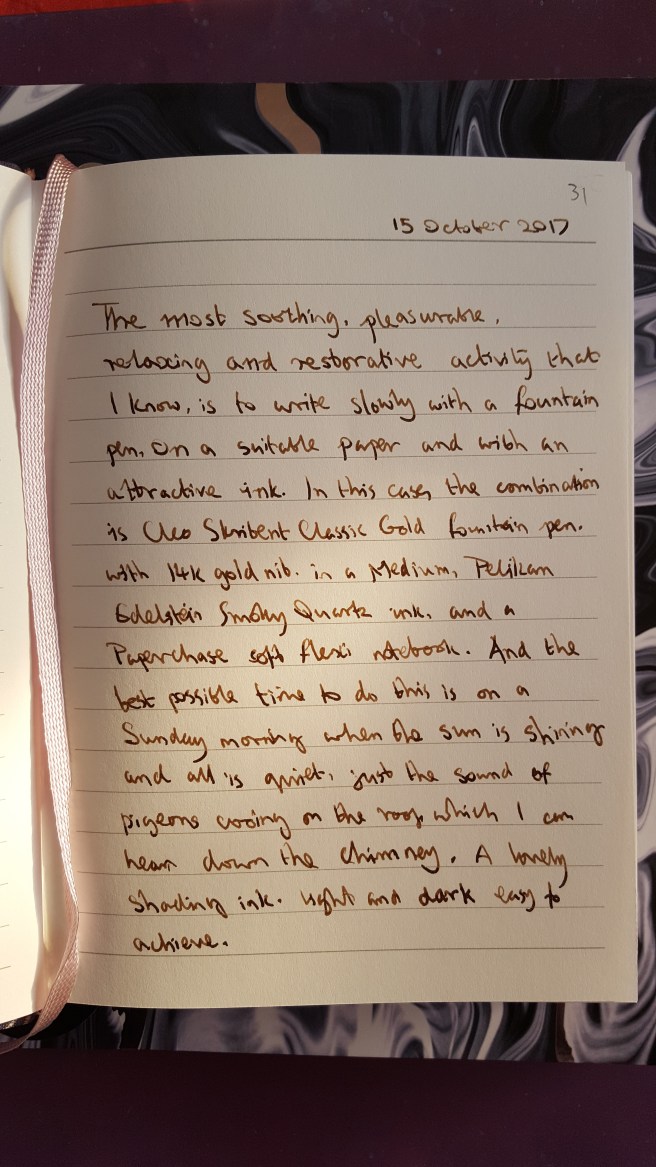 31
15 October 2017
The most soothing, pleasurable,
relaxing and restorative activity that
I know, is to write slowly with a fountain
pen, on a suitable paper and with an
attractive ink. In this case, the combination
is Cleo Skribent Classic Gold fountain pen.
with 14k gold nib. in a Medium, Pelikan
Edelstein Smoky Quartz ink, and a
Paperchase soft flexi notebook. And the
best possible time to do this is on a
Sunday morning when the sun is shining
and all is quiet, just the sound of
pigeons cooing on the roof, which I can
hear down the chimney. A lovely
shading ink. Light and dark easy to
achieve.